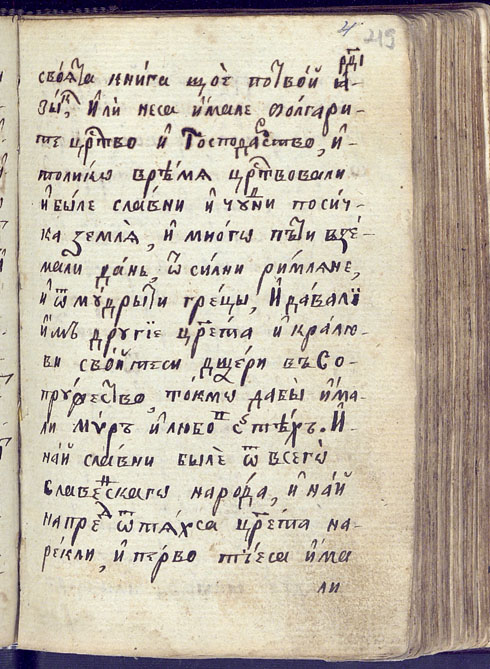 4 219
своѧта книга щот по твой ꙗ-
зы́къ, и́ли не са и́мале болгари-
те црⷭ҇тво и҆ Господарⷭ҇ство, и҆-
толикѡ врѣмѧ црⷭ҇твовали
и҆ были славни и҆ чꙋⷣни по сич-
ка землѧ, и҆ многѡ пꙋти взе-
мали дань ѿ силни римлѧне,
и҆ ѿ мꙋдрыти греци, и҆ давалї
и҆мъ дрꙋгїе црⷭ҇ета и҆ кралю-
ви свойте си дщери въ со-
прꙋжество, токмѡ дабы и҆ма-
ли мѵръ и҆ любоⷡ с тѣхъ. И҆
най славни были ѿ всегѡ
славенⷭкагѡ народа, и҆ най
напреⷣ ѿ тѧхса црⷭ҇ета на-
рекли, и҆ перво тѣеса и҆ма
ли